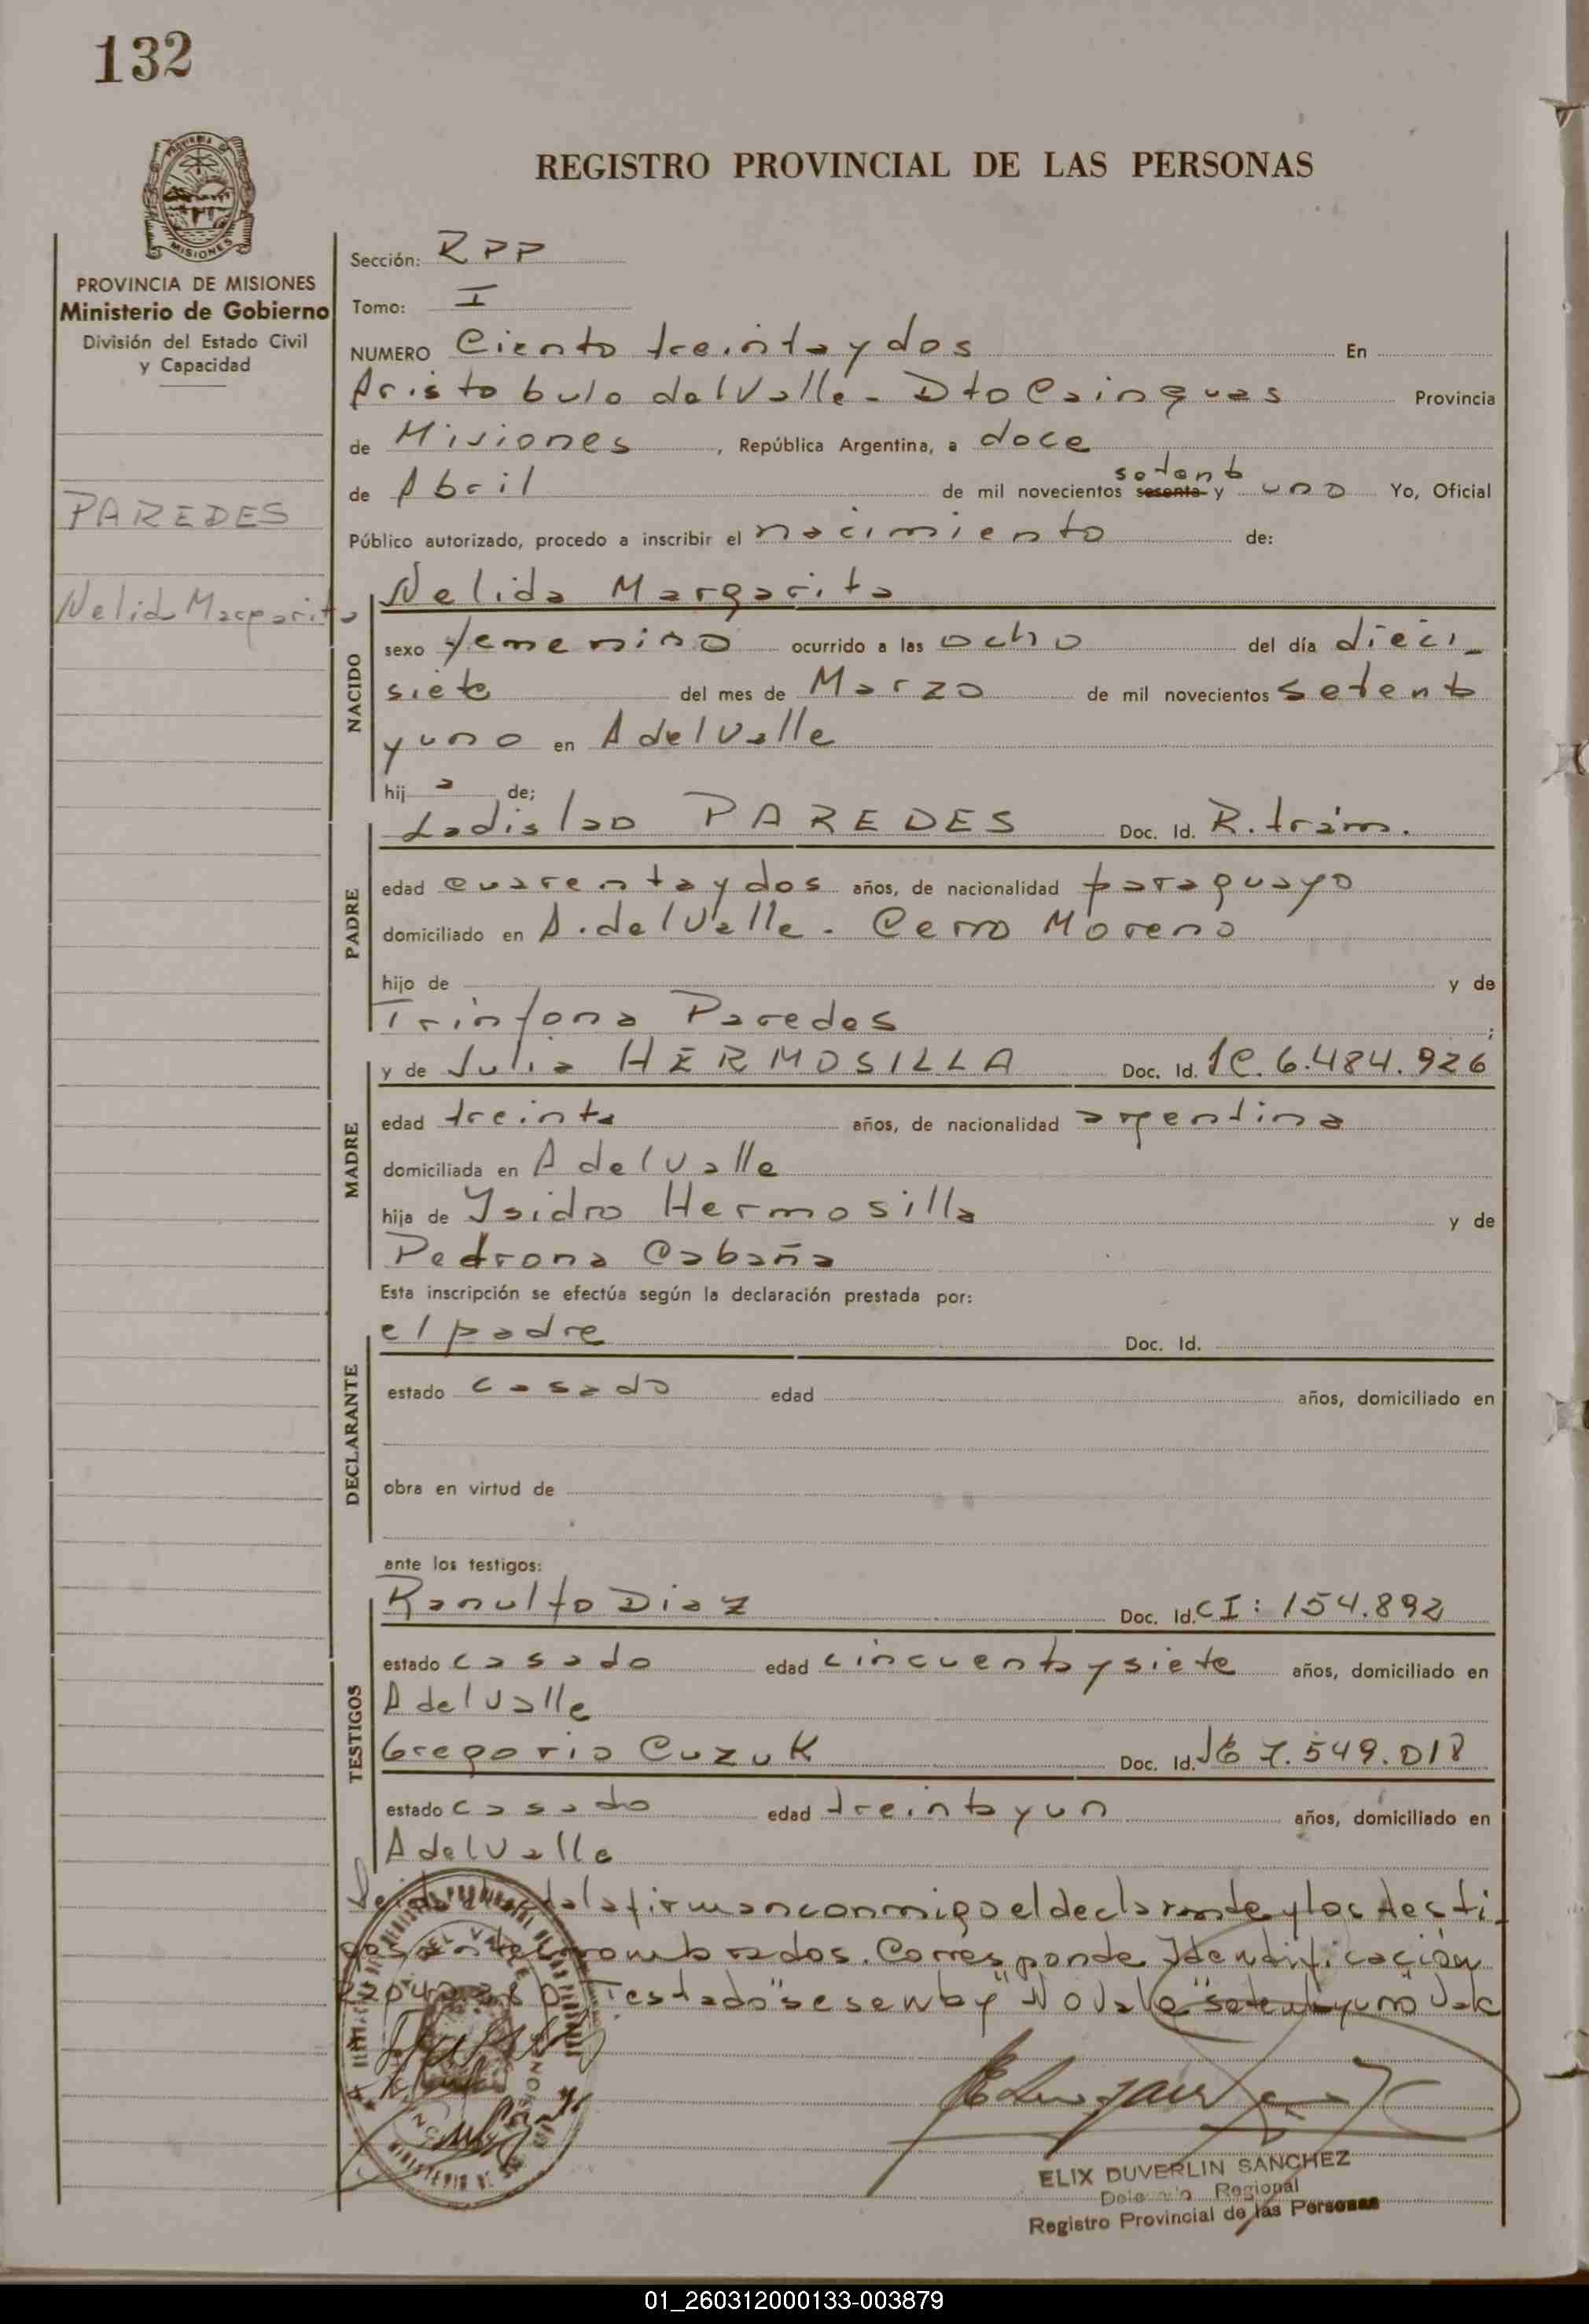 132
REGISTRO PROVINCIAL DE LAS PERSONAS
MISIONES
PROVINCIA DE MISIONES
Ministerio de Gobierno
División del Estado Civil
y Capacidad
PAREDES
Nelida Margarita
Sección: RPP
Tomo: I
NUMERO Ciento treinta y dos En
Aristobulo del Valle - Dto Cainguas Provincia
de Misiones, República Argentina, a doce
setenta
de Abril de mil novecientos sesenta y uno Yo, Oficial
Público autorizado, procedo a inscribir el nacimiento de:
NACIDO
Nelida Margarita
sexo femenino ocurrido a las ocho del día dieci-
siete del mes de Marzo de mil novecientos setenta
y uno en A del Valle
hij a de;
PADRE
Ladislao PAREDES Doc. Id. R. trám.
edad cuarenta y dos años, de nacionalidad paraguayo
domiciliado en A. del Valle - Cerro Moreno
hijo de y de
Trinfona Paredes ;
MADRE
y de Julia HERMOSILLA Doc. Id. 1C. 6.484.926
edad treinta años, de nacionalidad argentina
domiciliada en A del Valle
hija de Ysidro Hermosilla y de
Pedrona Cabaña
Esta inscripción se efectúa según la declaración prestada por:
DECLARANTE
el padre Doc. Id.
estado casado edad años, domiciliado en
obra en virtud de
ante los testigos:
TESTIGOS
Ranulfo Diaz Doc. Id. CI: 154.892
estado casado edad cincuenta y siete años, domiciliado en
A del Valle
Gregorio Cuzuk Doc. Id. 7.549.018
estado casado edad treinta y un años, domiciliado en
A del Valle
firman conmigo el declarante y los testi-
gos antes nombrados. Corresponde Identificación
Testado "sesenta y" No Vale "setenta y uno" Vale
ELIX DUVERLIN SANCHEZ
Delegado Regional
Registro Provincial de las Personas
01_260312000133-003879